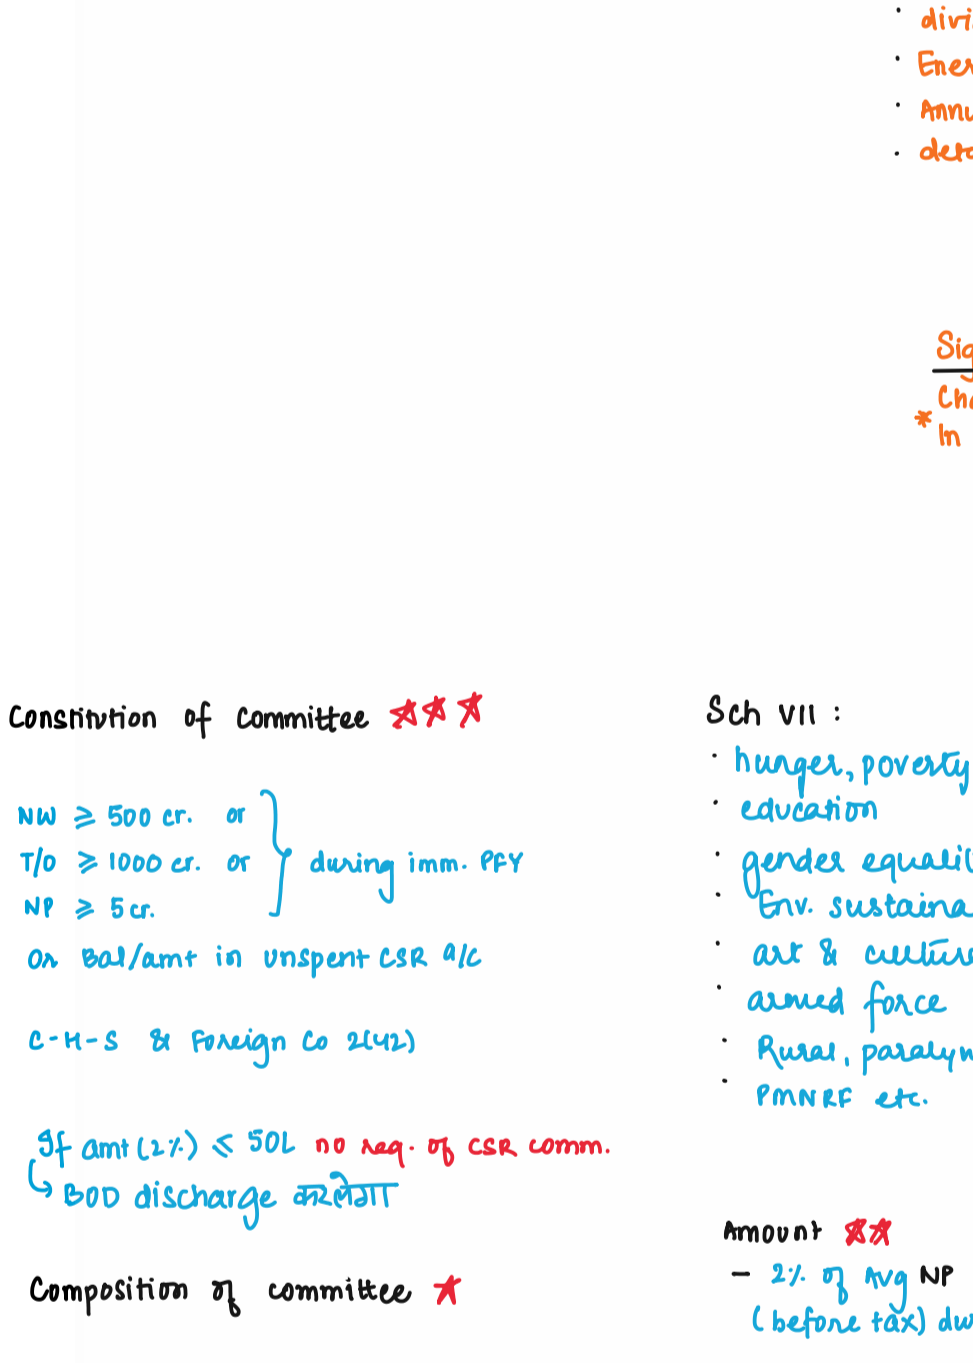 divi
Ener
Annu
deta
Sig
Cha
* In
Constitution of committee
NW ⩾ 500 cr. or
T/O ⩾ 1000 cr. or
during imm. PFY
NP ⩾ 5 cr.
or Bal/amt in unspent CSR a/c
C-H-S & Foreign Co 2(42)
If amt (2%) ⩽ 50L no req. of CSR comm.
↳ BOD discharge करलेगा
Composition of committee
Sch VII :
· hunger, poverty
· education
· gender equalit
· Env. sustaina
· art & culture
· armed force
· Rural, paralym
· PMNRF etc.
Amount
– 2% of Avg NP
(before tax) du